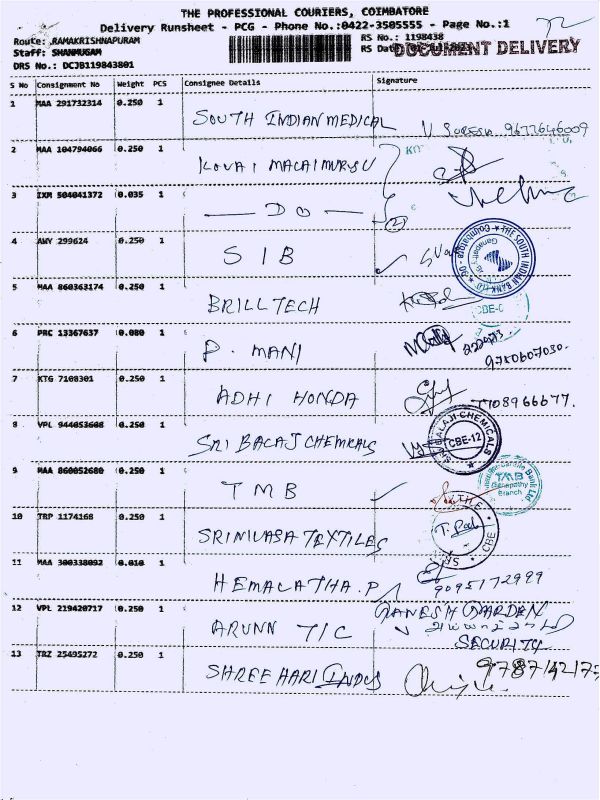 THE PROFESSIONAL COURIERS, COIMBATORE
Delivery Runsheet - PCG - Phone No.:0422-3505555 - Page No.:1
Route: RAMAKRISHNAPURAM
RS No.: 1198438
Staff: SHANMUGAM
RS Dat
DOCUMENT DELIVERY
DRS No.: DCJB119843801
S No Consignment No Weight PCS Consignee Details Signature
1 MAA 291732314 0.250 1 SOUTH INDIAN MEDICAL V SURESH 9677646009
2 MAA 104794066 0.250 1 KOVAI MALAIMURSU
3 IXM 504041372 0.035 1 — DO — 2
4 AWY 299624 0.250 1 SIB
THE SOUTH INDIAN BANK LTD
Ganapathy
Coimbatore
5 MAA 860363174 0.250 1 BRILLTECH
CBE-
6 PRC 13367637 0.080 1 P. MANI
9750607030.
7 KTG 7108301 0.250 1 ADHI HONDA 7708966677.
8 VPL 944053608 0.250 1 SRI BALAJ CHEMICALS
BALAJI CHEMICALS
CBE-12
9 MAA 860052680 0.250 1 TMB
TMB
Ganapathy
Branch
10 TRP 1174168 0.250 1 SRINIVASA TEXTILES
THE
CBE
11 MAA 300338092 0.010 1 HEMALATHA.P 9095172999
12 VPL 219420717 0.250 1 ARUNN T/C GANESH GARDEN
SECURITY
13 TRZ 25495272 0.250 1 SHREE HARI INDUS